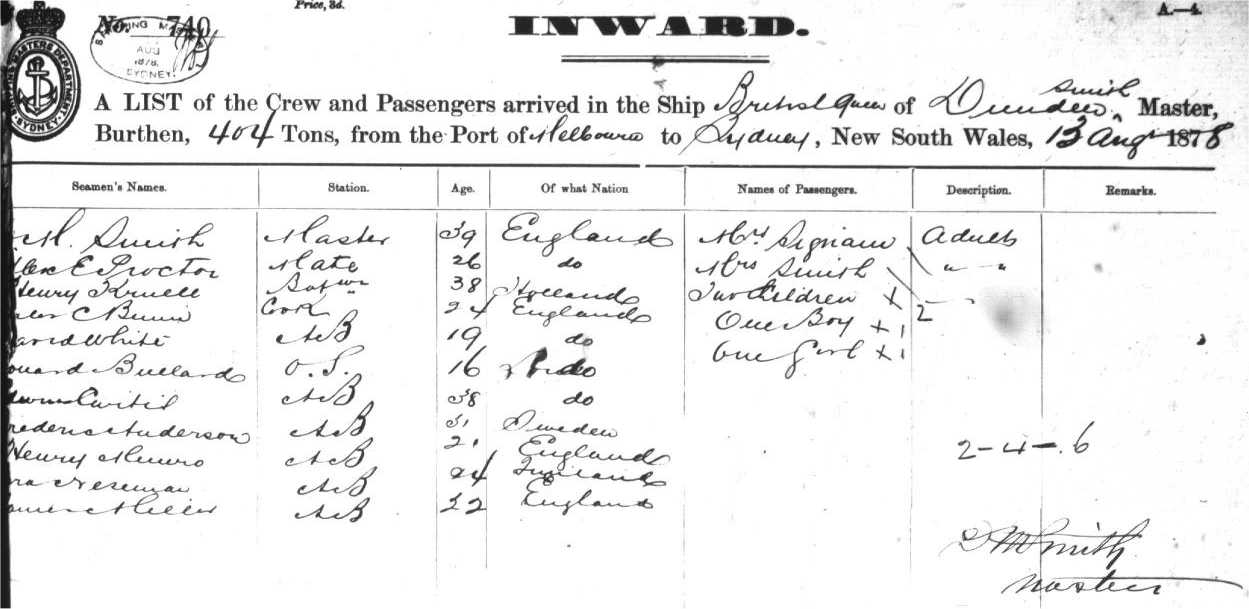 Price, 3d.
A.—4.
No. 740
INWARD.
SHIPPING MASTER
AUG
1878.
SYDNEY
SHIPPING MASTERS DEPARTMENT
SYDNEY
Smith
A LIST of the Crew and Passengers arrived in the Ship British Queen of Dundee, Master,
Burthen, 404 Tons, from the Port of Melbourne to Sydney, New South Wales, 13 Augt 1878
Seamen's Names. Station. Age. Of what Nation Names of Passengers. Description. Remarks.
M. Smith Master 39 England Mrs Adults
E Proctor Mate 26 do Mrs Smith " "
Henry Boswn 38 Holland Two Children x 2
C Cook 24 England One Boy x 1
David White AB 19 do One Girl x 1
Bullard O.S. 16 do
AB 38 do
Frederic Anderson AB 31 Sweden
Henry Munro AB 21 England
AB 24
James Miller AB 22 England
2-4-.6
M Smith
Master